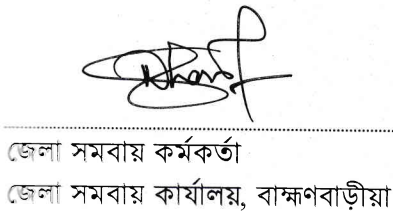 জেলা সমবায় কর্মকর্তা
জেলা সমবায় কার্যালয়, বাহ্মণবাড়ীয়া